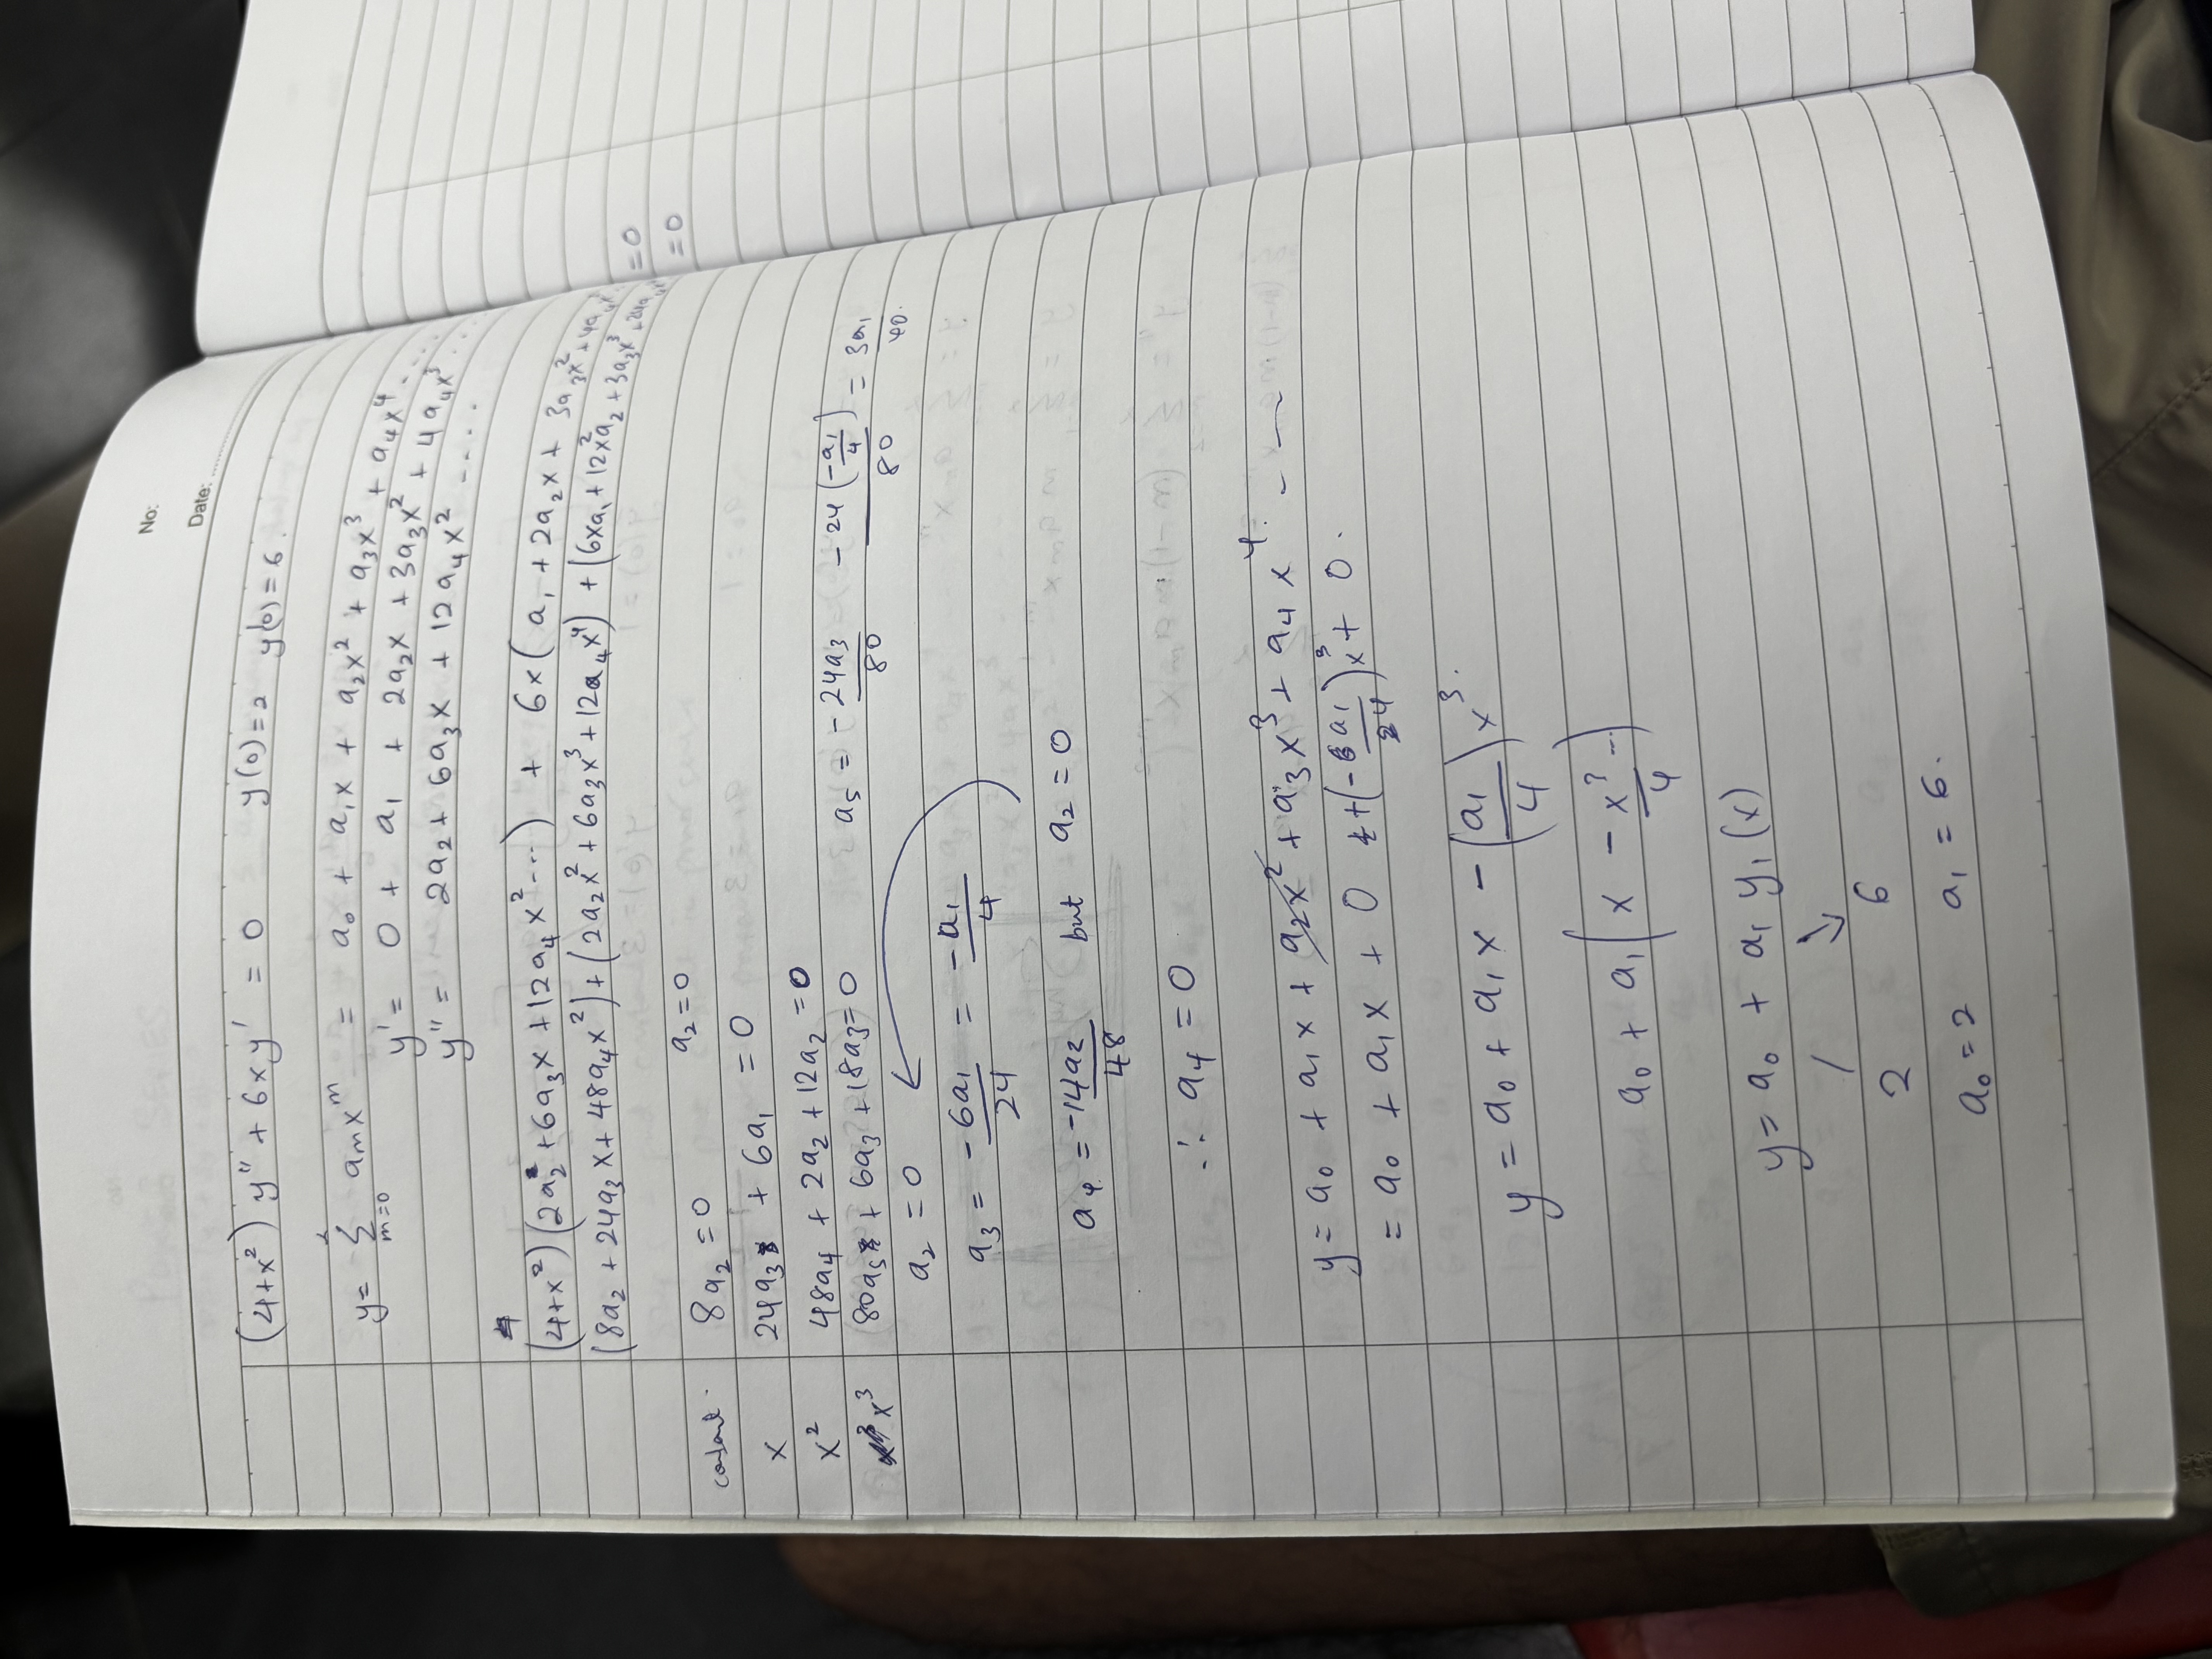 No:
Date:
(4+x²) y'' + 6xy' = 0 y(0)=2 y(0)=6.
y = Σ m=0 amx^m = a₀ + a₁x + a₂x² + a₃x³ + a₄x⁴ ....
y' = 0 + a₁ + 2a₂x + 3a₃x² + 4a₄x³ ...
y'' = 2a₂ + 6a₃x + 12a₄x² - ...
(4+x²)(2a₂ + 6a₃x + 12a₄x² ...) + 6x(a₁ + 2a₂x + 3a₃x² + 4a₄x³ = 0
(8a₂ + 24a₃x + 48a₄x²) + (2a₂x² + 6a₃x³ + 12a₄x⁴) + (6xa₁ + 12x²a₂ + 3a₃x³ + 24a₄x = 0
constant. 8a₂ = 0 a₂ = 0
x 24a₃ + 6a₁ = 0
x² 48a₄ + 2a₂ + 12a₂ = 0
x³ (80a₅ + 6a₃ + 18a₃) = 0 a₅ = -24a₃/80 -24(-a₁/4)/80 = 3a₁/40.
a₂ = 0
a₃ = -6a₁/24 = -a₁/4
a₄ = -14a₂/48 but a₂ = 0
∴ a₄ = 0
y = a₀ + a₁x + a₂x² + a₃x³ + a₄x⁴. - - -
= a₀ + a₁x + 0 + (-6a₁/24)x³ + 0.
y = a₀ + a₁x - (a₁/4)x³.
a₀ + a₁(x - x³/4 ...)
y = a₀ + a₁ y₁(x)
2 6
a₀ = 2 a₁ = 6.